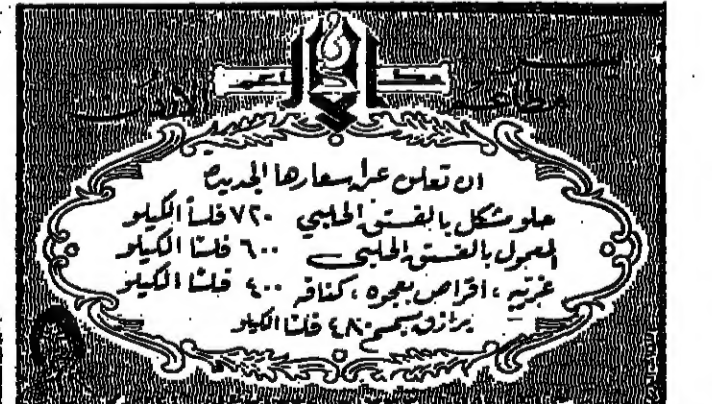 يسر
مطاعم الأردن
مطاعم
ان تعلن عن اسعارها الجديدة
حلو مشكل بالفستق الحلبي ٧٢٠ فلساً الكيلو
المعمول بالفستق الحلبي ٦٠٠ فلساً الكيلو
، اقراص بعجوه ، كنافه ٤٠٠ فلساً الكيلو
برازق بسمسم ٤٨٠ فلساً الكيلو